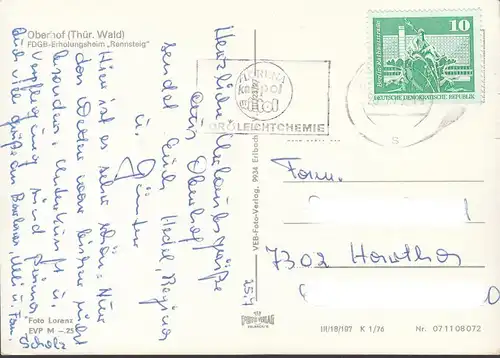 Oberhof (Thür. Wald)
FDGB-Erholungsheim „Rennsteig"
Herzliche Urlaubsgrüße
aus Oberhof
sendet Euch Hedel, Regina
u. Günter
Hier ist es sehr schön. Nur
das Wetter war bisher nicht
besonders. Unterkunft u.
Verpflegung sind prima.
Auch viele Grüße an Barbara, u. Fam.
Scholz
25.7.
Foto Lorenz
EVP M –.25
VEB-Foto-Verlag, 9934 Erlbach
FLORENA
OROLEICHTCHEMIE
10
DEUTSCHE DEMOKRATISCHE REPUBLIK
S
Fam.
7302 Hartha
III/18/187 K 1/76
Nr. 071108072